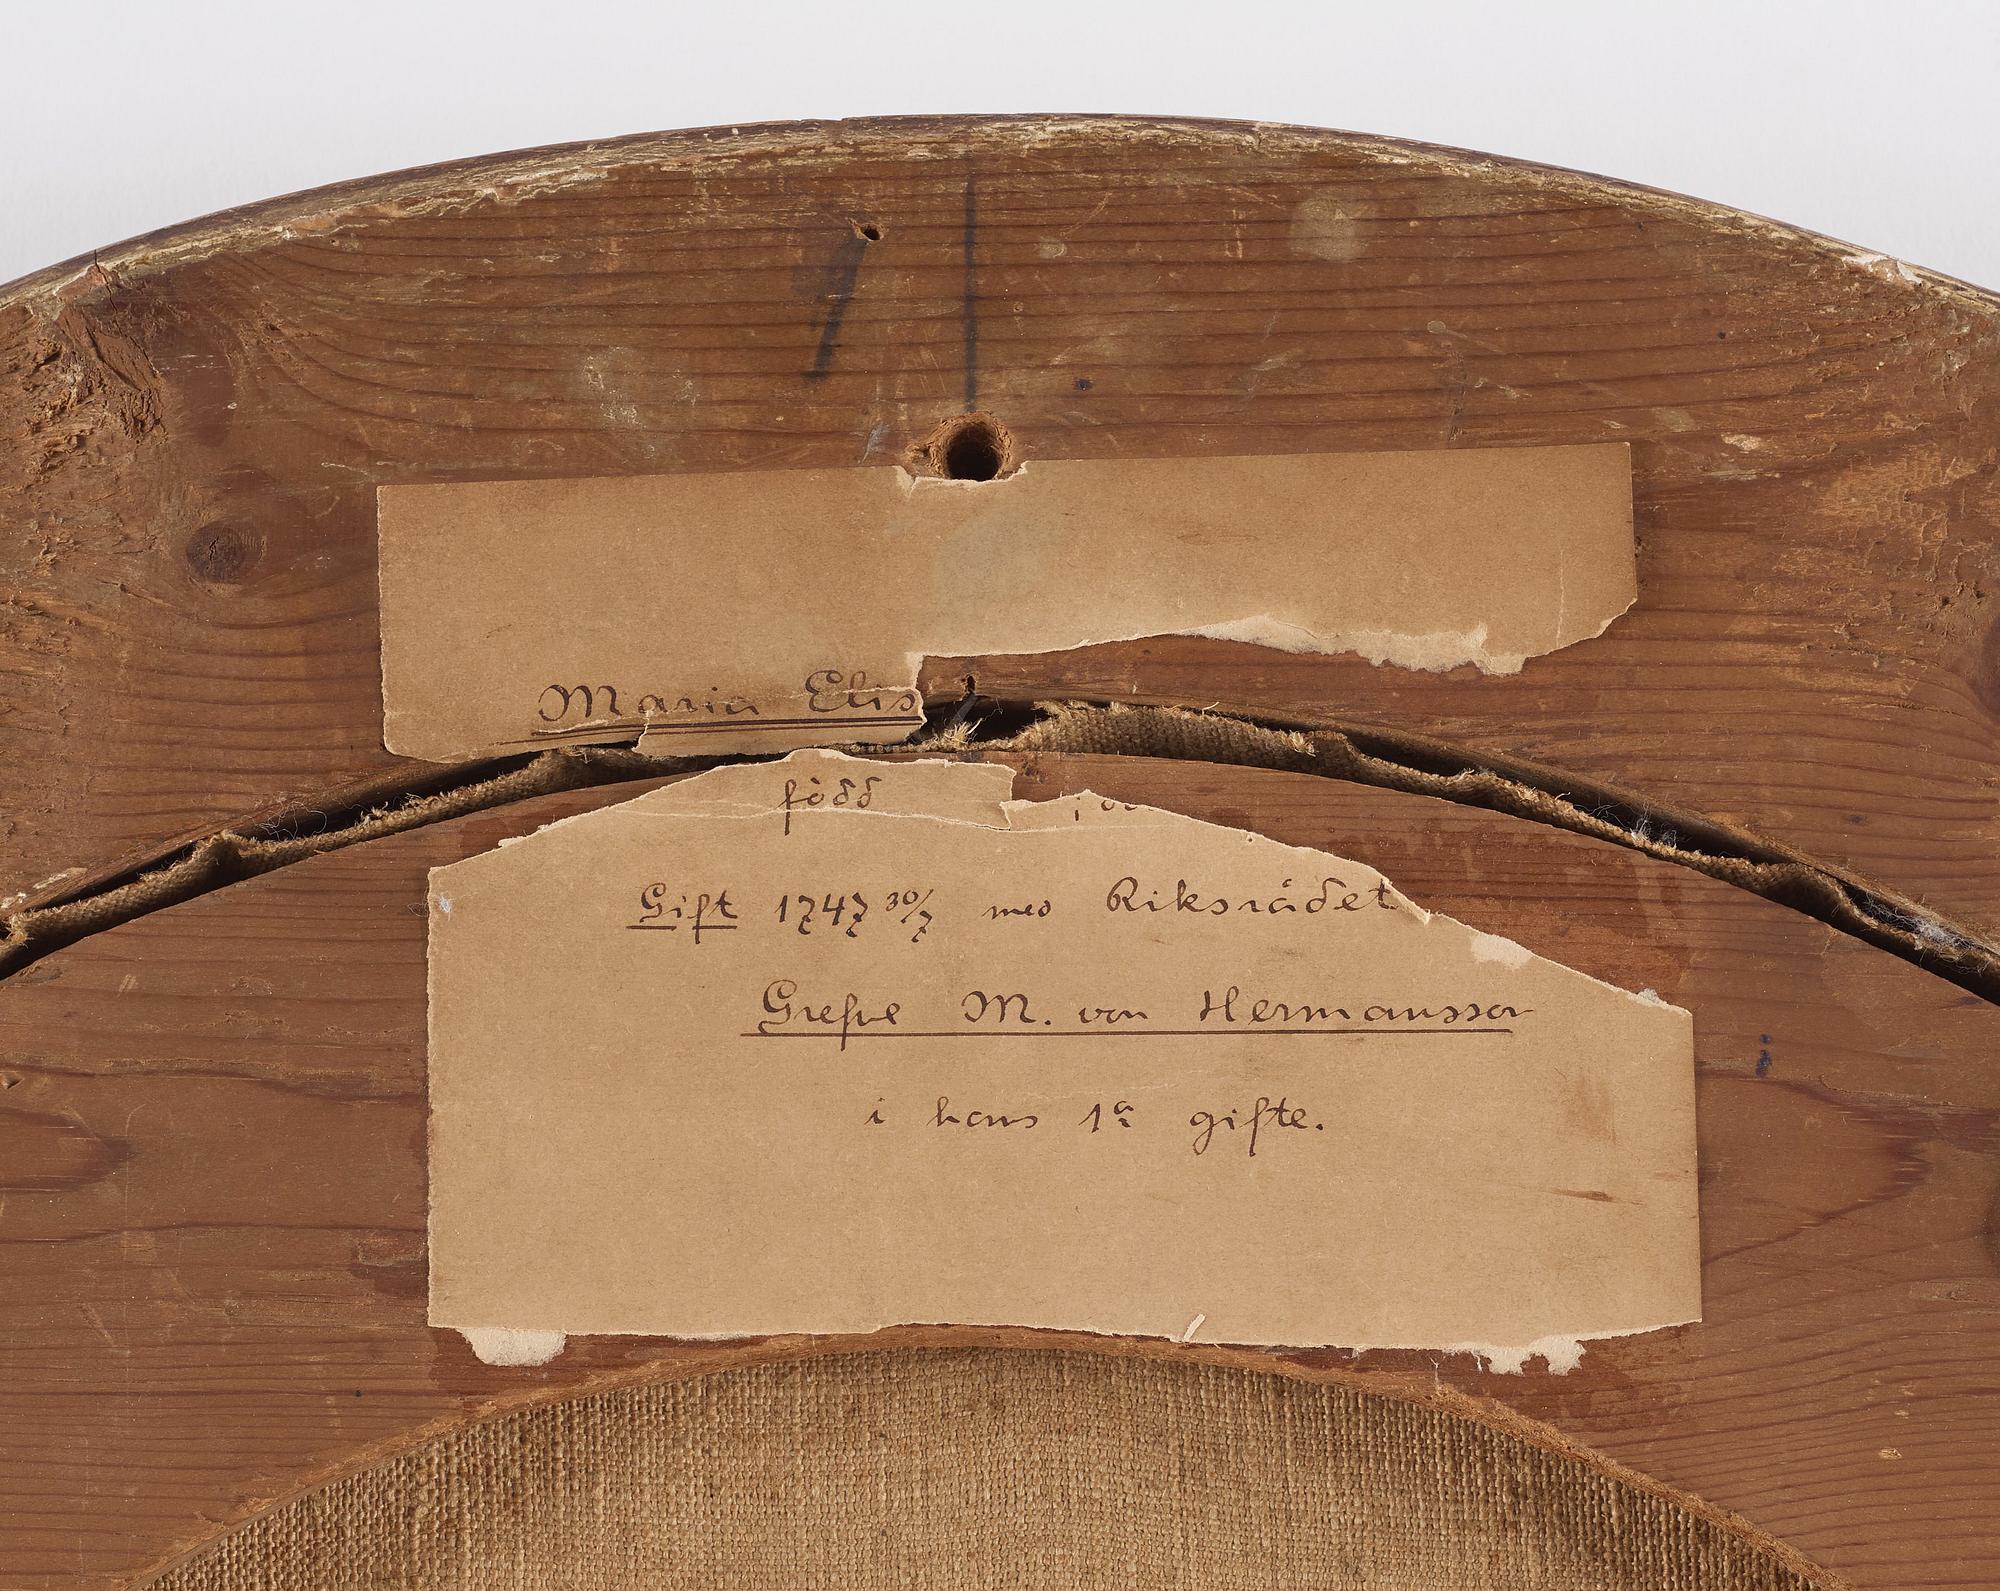 Maria Elis
född
Gift 1747 30/7 med Riksrådet
Grefve M. von Hermansson
i hans 1a gifte.